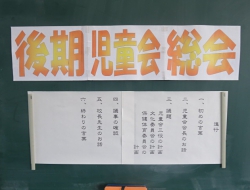 後期 児童会 総会
進行
一、初めの言葉
二、児童会会長のお話
三、議題
児童会三役の計画
文化委員会の計画
保健体育委員会の計画
四、議事の確認
五、校長先生のお話
六、終わりの言葉